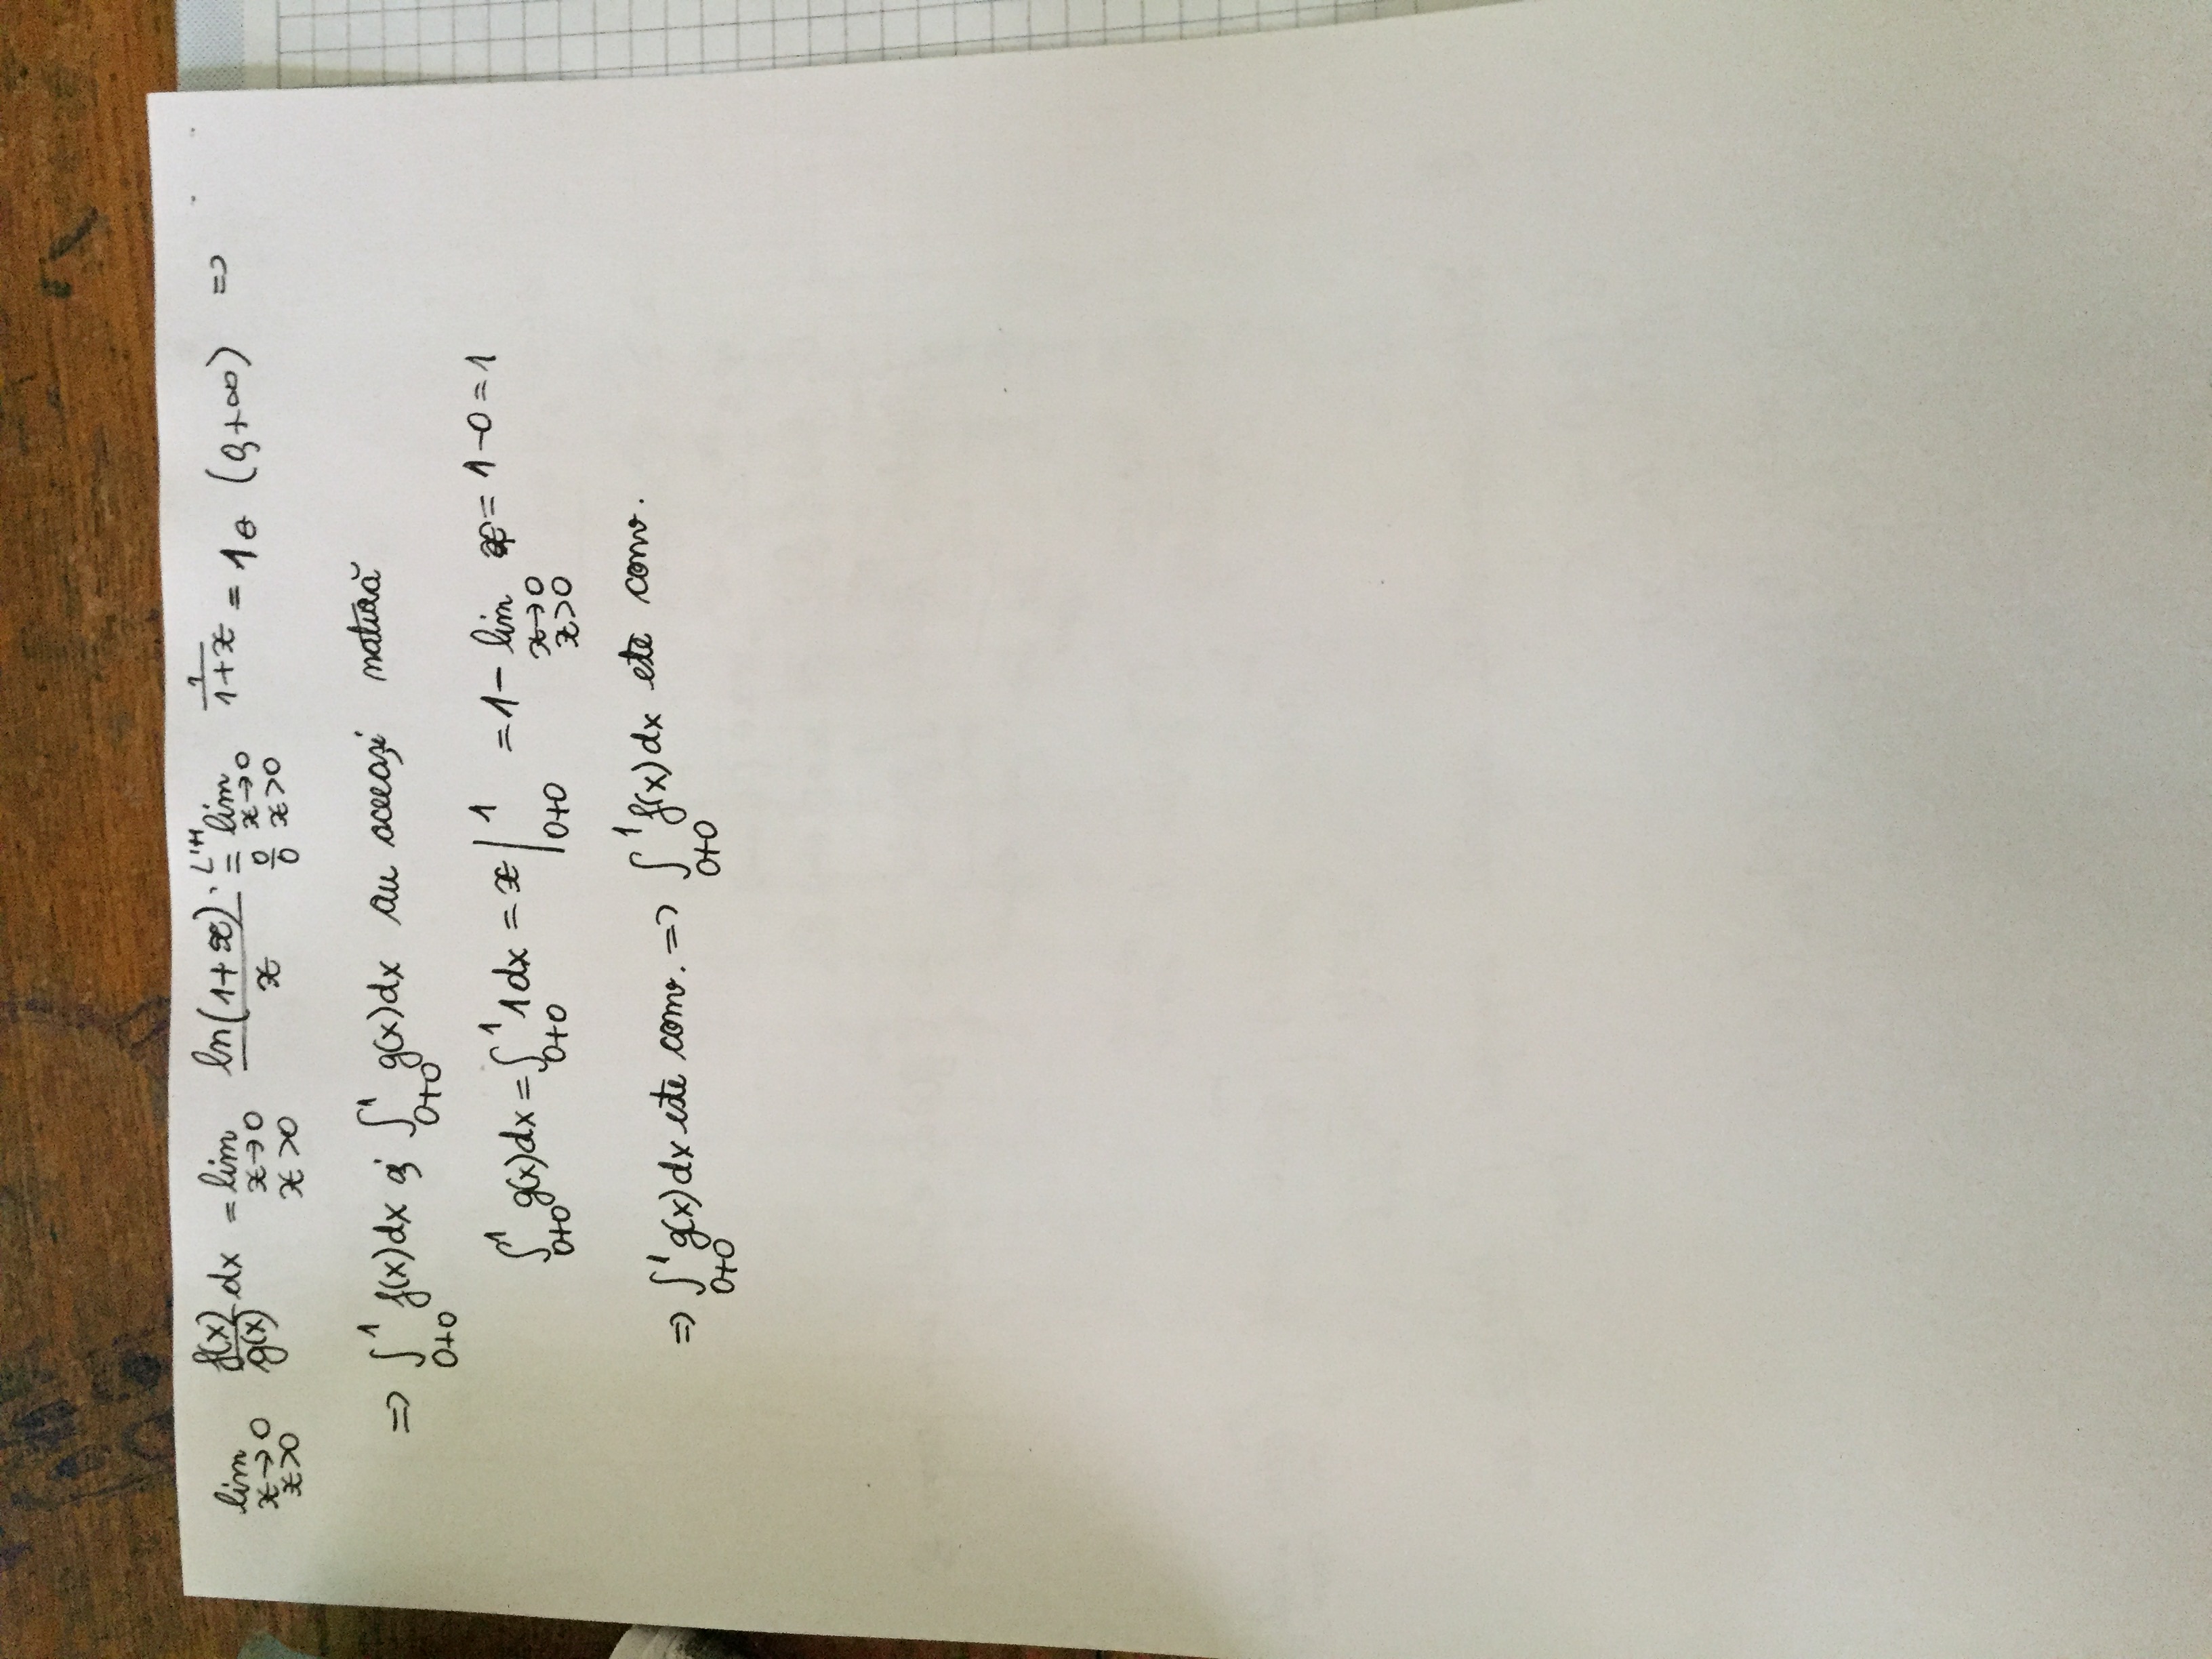 lim x→0 x>0 f(x)/g(x) dx = lim x→0 x>0 ln(1+x)/x L'H = 0/0 lim x→0 x>0 1/(1+x) = 1 ∈ (0,+∞) =>
=> ∫_{0+0}^{1} f(x)dx și ∫_{0+0}^{1} g(x)dx au aceeași natură
∫_{0+0}^{1} g(x)dx = ∫_{0+0}^{1} 1dx = x |_{0+0}^{1} = 1 - lim x→0 x>0 x = 1-0 = 1
=> ∫_{0+0}^{1} g(x)dx este conv. => ∫_{0+0}^{1} f(x)dx este conv.